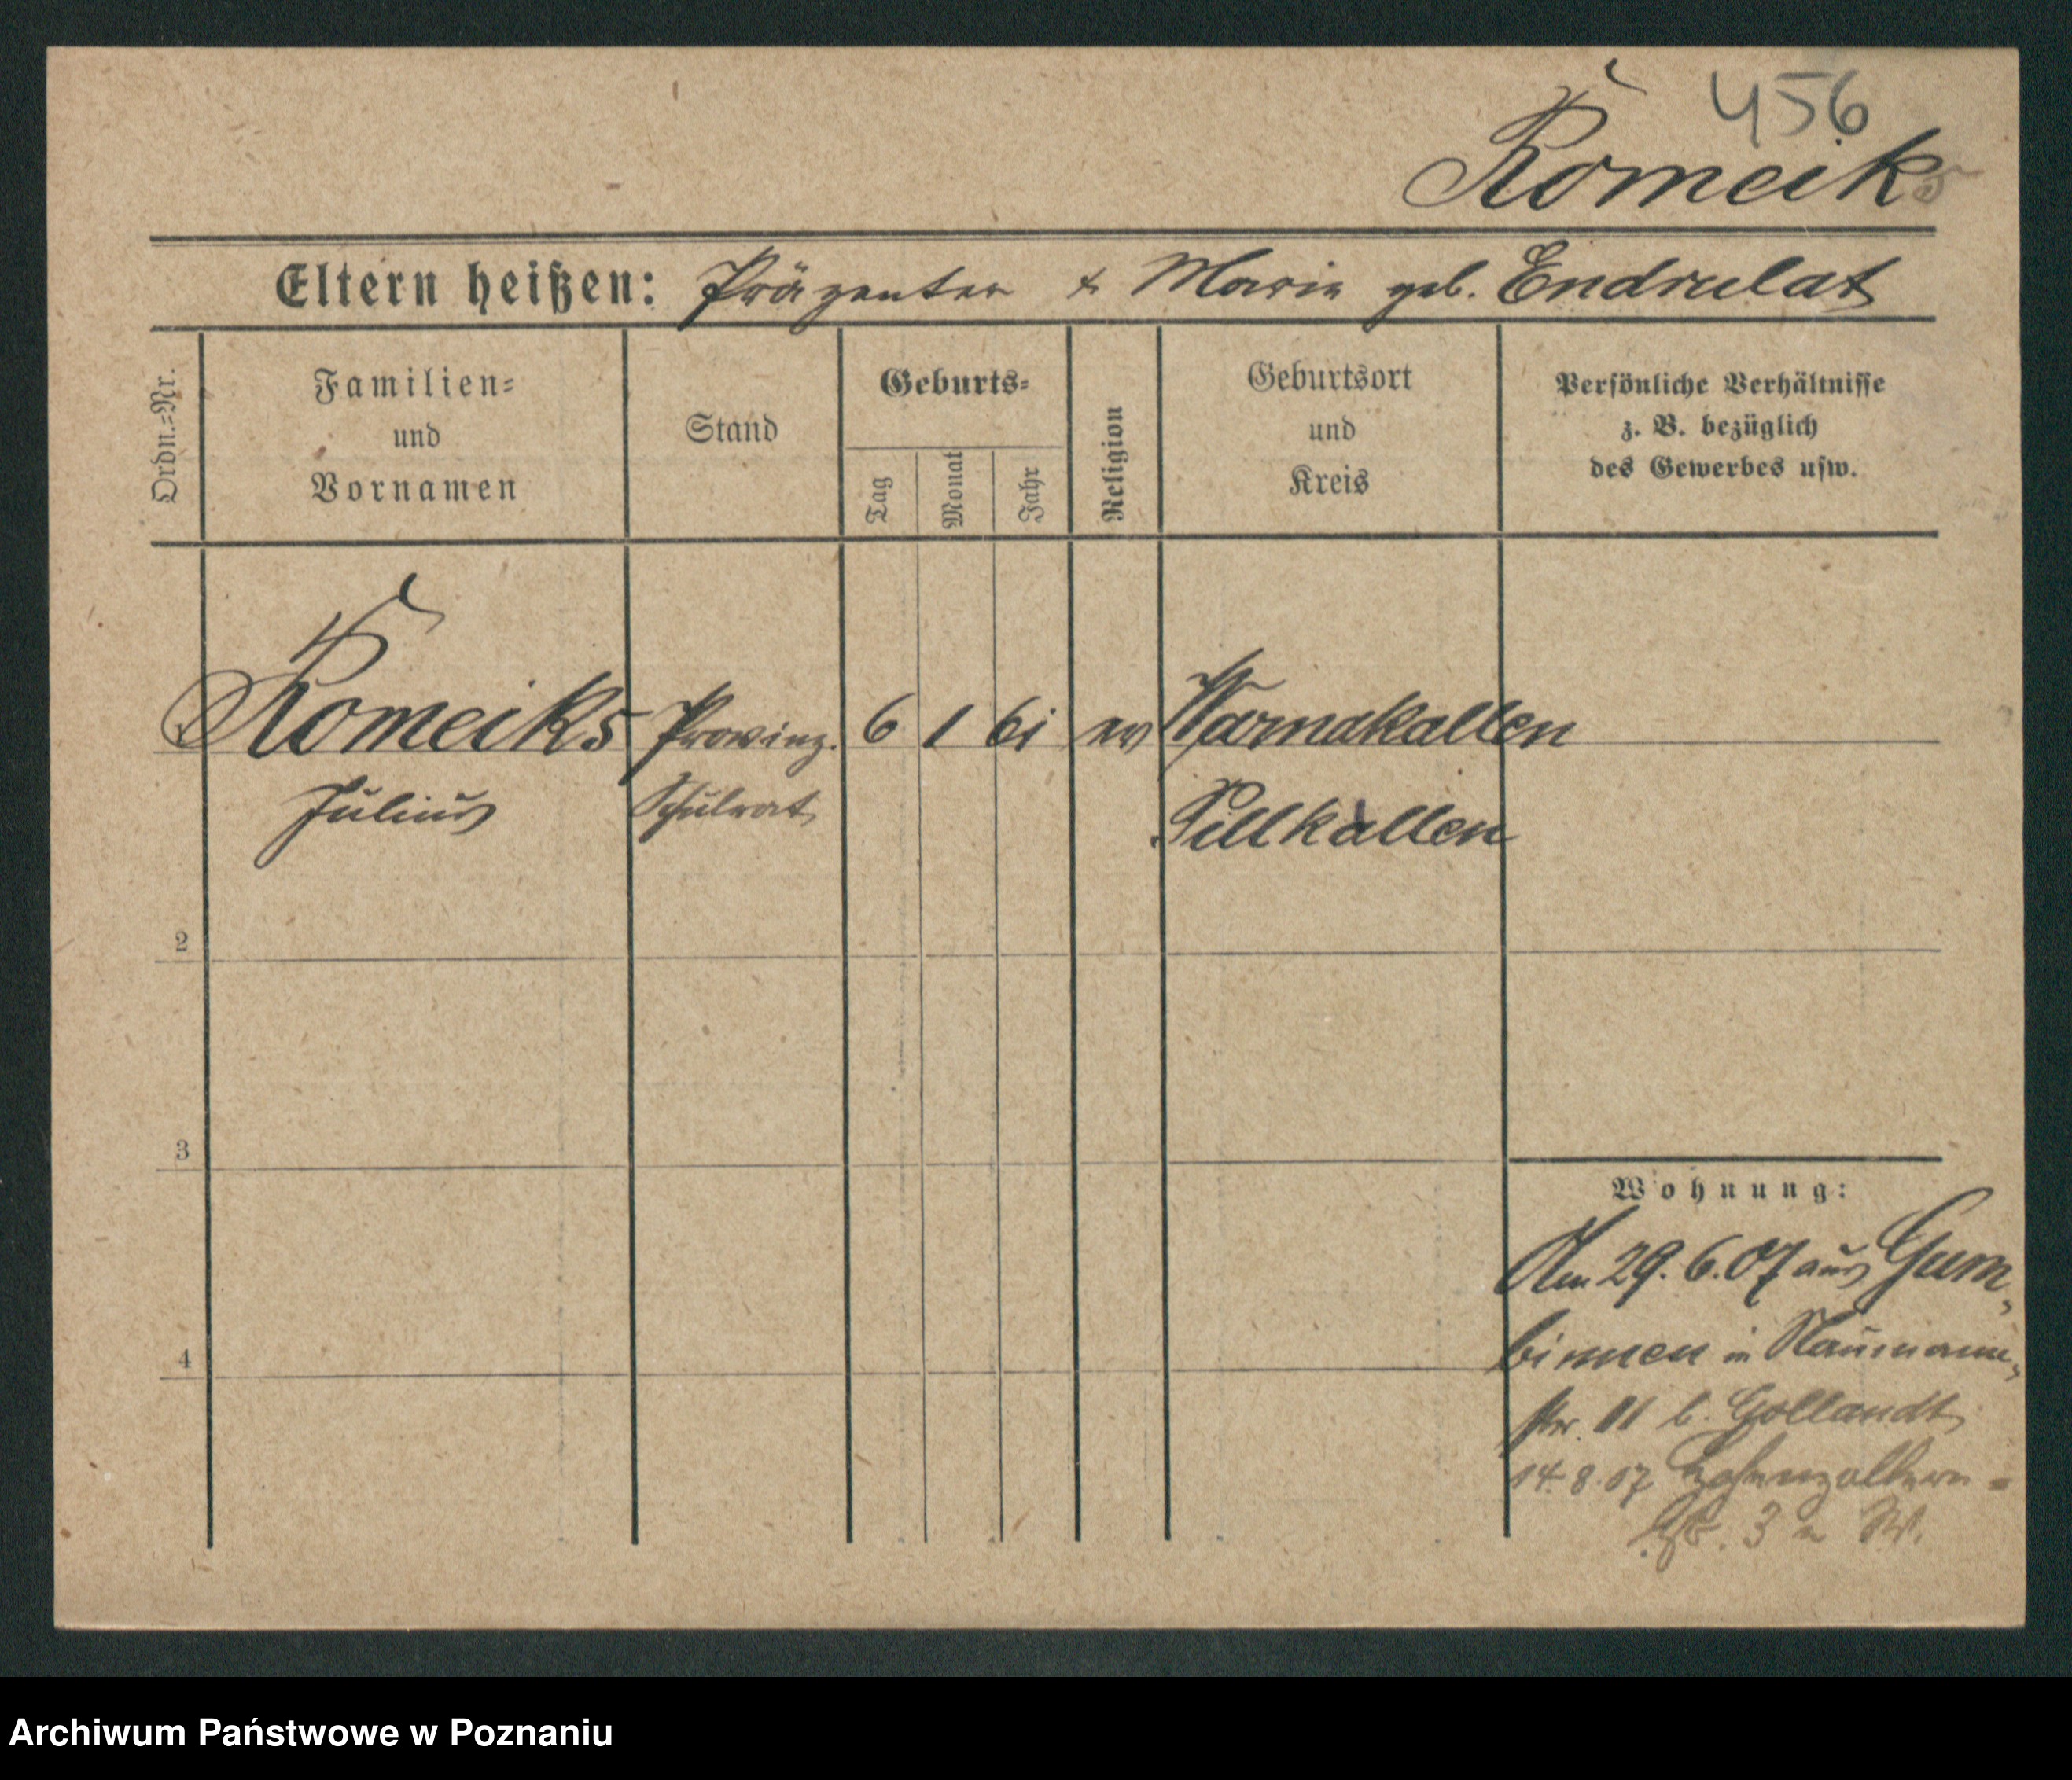 456
Romeiks
Eltern heißen: Präzentor & Marie geb. Endrulat
Ordn.=Nr.
Familien=
und
Vornamen
Stand
Geburts=
Tag
Monat
Jahr
Religion
Geburtsort
und
Kreis
Persönliche Verhältnisse
z. B. bezüglich
des Gewerbes usw.
Romeiks Provinz. 6 1 61 ev Warnakallen
Julius Schulrat Pillkallen
2
3
4
Wohnung:
Am 29. 6. 07 aus Gum-
binnen in Naumann-
str. 11 b. Gollandt
14. 8. 07 Hohenzollern-
str. 3 W.
Archiwum Państwowe w Poznaniu